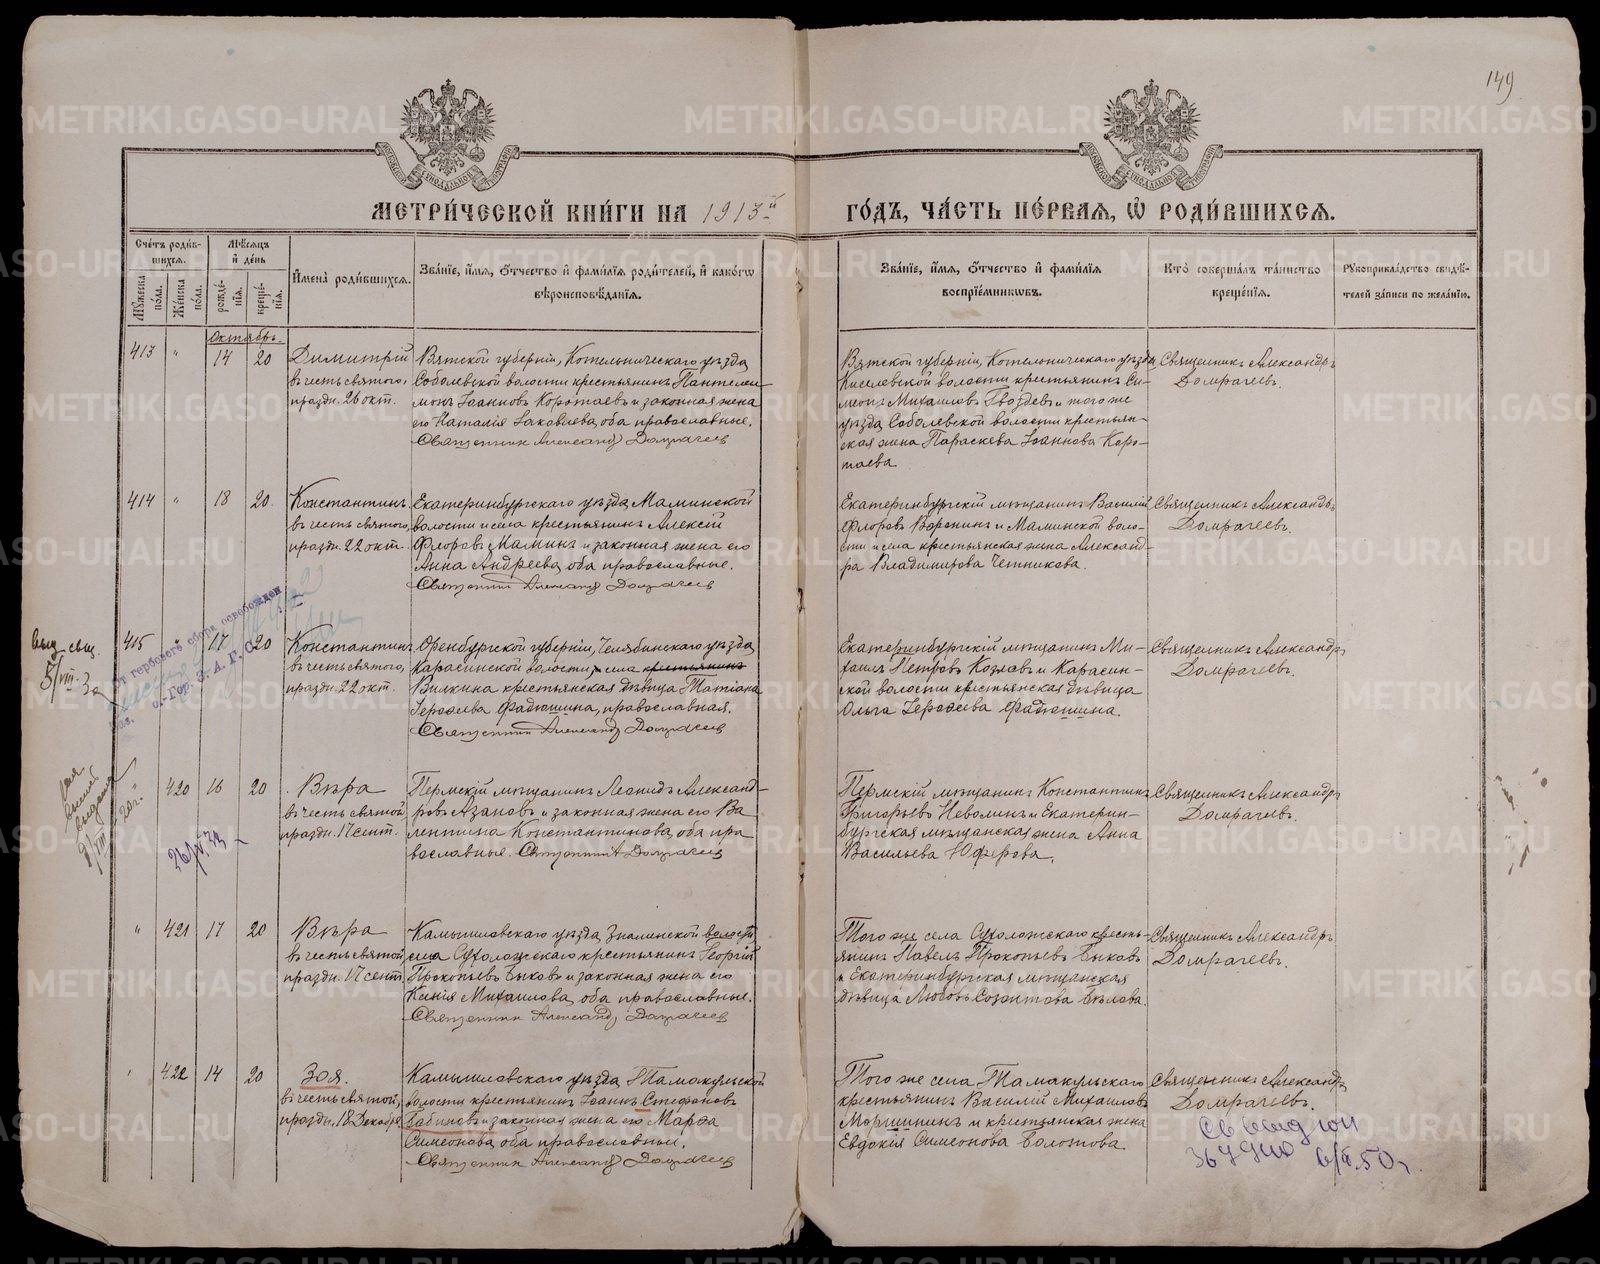 149
МЕТРИ́ЧЕСКОЙ КНИ́ГИ НА 1913й ГО́ДЪ, ЧА́СТЬ ПЕ́РВАѦ, Ѡ҆ РОДИ́ВШИХСѦ.
Сче́тъ роди́в-
шихсѧ.
Мѹжеска по́ла.
Же́нска по́ла.
Мѣ́сѧцъ
и҆ де́нь
рожде́-
нїѧ.
креще́-
нїѧ.
И҆мена̀ роди́вшихсѧ.
Зва́нїе, и҆́мѧ, ѻ҆́тчество и҆ фами́лїѧ роди́телей, и҆ како́гѡ
вѣроисповѣ́данїѧ.
Зва́нїе, и҆́мѧ, ѻ҆́тчество и҆ фами́лїѧ
воспрїе́мникѡвъ.
Кто̀ соверша́лъ та́инство
креще́нїѧ.
Рѹкоприкла́дство свидѣ́-
телей за́писи по жела́нїю.
Октябрь.
413 " 14 20
Димитрій
въ честь святого,
праздн. 26 окт.
Вятской губерніи, Котельническаго уѣзда
Соболевской волости крестьянинъ Пантелеи-
монъ Іоанновъ Коротаевъ и законная жена
его Наталія Іаковлева, оба православные.
Священник Александр Домрачеев
Вятской губерніи, Котельническаго уѣзда
Киселевской волости крестьянинъ Си-
меонъ Михаиловъ Гвоздевъ и того же
уѣзда Соболевской волости крестьян-
ская жена Параскева Іоаннова Коро-
таева
Священникъ Александръ
Домрачеевъ.
414 " 18 20
Константинъ
въ честь святого,
праздн. 22 окт.
Екатеринбургскаго уѣзда Маминской
волости и села крестьянинъ Алексій
Флоровъ Маминъ и законная жена его
Анна Андреева, оба православные.
Священник Александр Домрачеев
Екатеринбургскій мѣщанинъ Василій
Флоровъ Воронинъ и Маминской воло-
сти и села крестьянская жена Александ-
ра Владимирова Четникова.
Священникъ Александръ
Домрачеевъ.
От гербового сбора освобожден
415 17 20
Константинъ
въ честь святого,
праздн. 22 окт.
Оренбургской губерніи, Челябинскаго уѣзда
Карасинской волости, села крестьянинъ
Вилкина крестьянская дѣвица Татіана
Ѳеродева Фадюшина, православная.
Священник Александр Домрачеев
Екатеринбургскій мѣщанинъ Ми-
хаилъ Петровъ Козловъ и Карасин-
ской волости крестьянская дѣвица
Ольга Ѳеродева Фадюшина.
Священникъ Александръ
Домрачеевъ.
" 420 16 20
Вѣра
въ честь святой,
праздн. 17 сент.
Пермскій мѣщанинъ Леонидъ Александ-
ровъ Азановъ и законная жена его Ва-
лентина Константинова, оба пра
вославные. Священник А Домрачеев
Пермскій мѣщанинъ Константинъ
Григорьевъ Неволинъ и Екатерин-
бургская мѣщанская жена Анна
Васильева Юферова.
Священникъ Александръ
Домрачеевъ.
" 421 17 20
Вѣра
въ честь святой,
праздн. 17 сент.
Камышловскаго уѣзда Знаменской волости
села Сухоложскаго крестьянинъ Георгій
Прокопьевъ Быковъ и законная жена его
Ксенія Михаилова, оба православные.
Священник Александр Домрачеев
Того же села Сухоложскаго кресть-
янинъ Павелъ Прокопьевъ Быковъ
и Екатеринбургская мѣщанская
дѣвица Любовь Созонтова Бѣлова.
Священникъ Александръ
Домрачеевъ.
" 422 14 20
Зоя.
въ честь святой,
праздн. 18 Декабря
Камышловскаго уѣзда Тамакульской
волости крестьянинъ Іоаннъ Стефановъ
Бабиновъ и законная жена его Марѳа
Симеонова, оба православные.
Священник Александр Домрачеев
Того же села Тамакульскаго
крестьянинъ Василій Михаиловъ
Моршининъ и крестьянская жена
Евдокія Симеонова Болотова.
Священникъ Александръ
Домрачеевъ.
METRIKI.GASO-URAL.RU